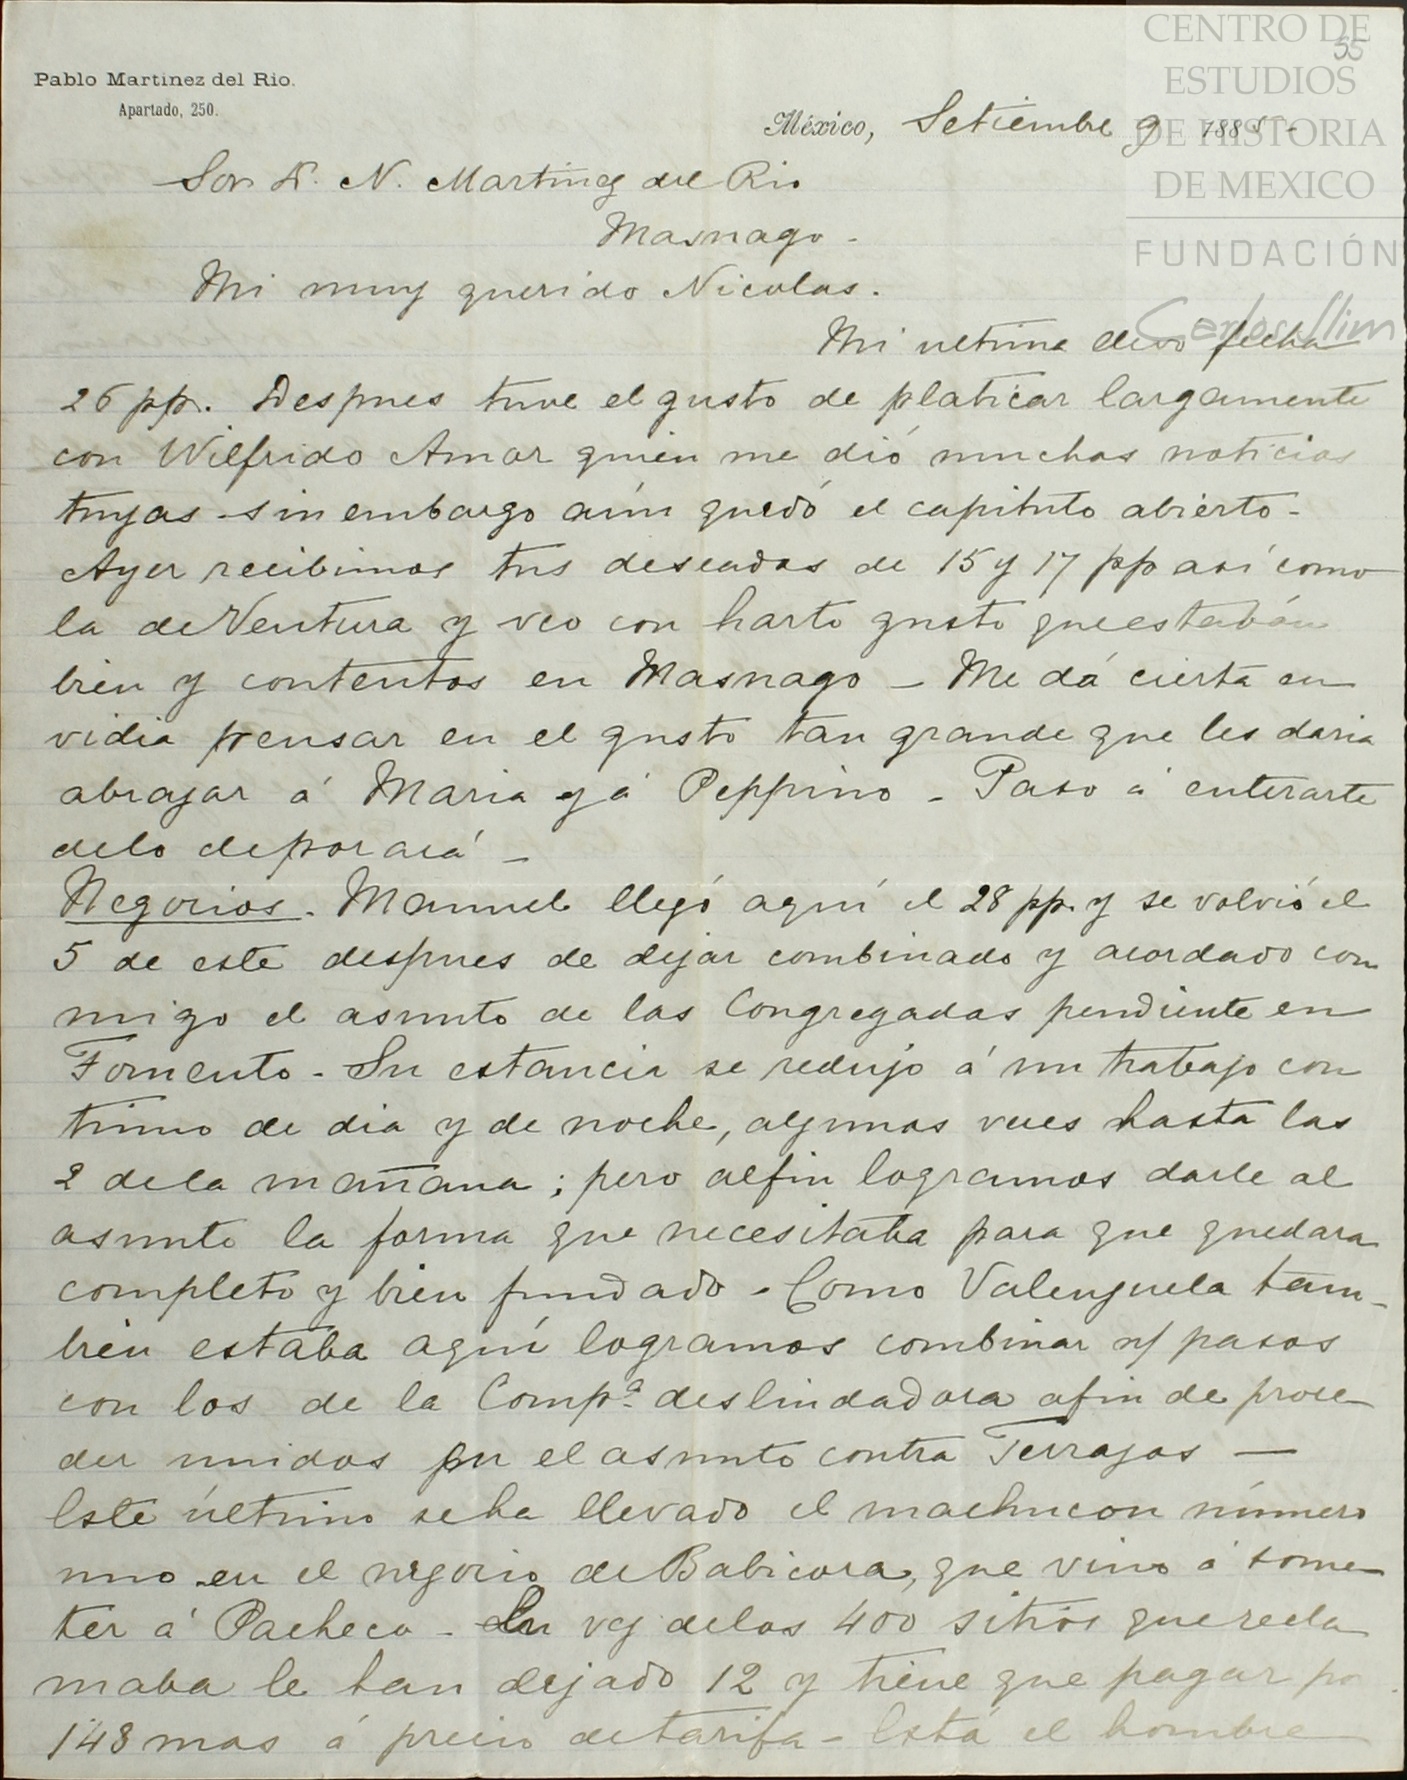 CENTRO DE
ESTUDIOS
DE HISTORIA
DE MEXICO
FUNDACIÓN
Carlos Slim
55
Pablo Martinez del Rio.
Apartado, 250.
México, Setiembre 9 1885-
Sor. D. N. Martinez del Rio
Masnago-
Mi muy querido Nicolas.
Mi ultima llevó fecha
26 pp. Despues tuve el gusto de platicar largamente
con Wilfrido Amor quien me dió muchas noticias
tuyas - sin embargo aún quedó el capitulo abierto-
Ayer recibimos tus deseadas de 15 y 17 pp así como
la de Ventura y veo con harto gusto que estaban
bien y contentos en Masnago - Me dá cierta en
vidia pensar en el gusto tan grande que les daria
abrazar á Maria y á Peppino - Paso á enterarte
de lo de por acá -
Negocios. Manuel llegó aquí el 28 pp. y se volvió el
5 de este despues de dejar combinado y acordado con
migo el asunto de las Congregadas pendiente en
Fomento - Su estancia se redujo á un trabajo con
tinuo de dia y de noche, algunas veces hasta las
2 de la mañana; pero al fin logramos darle al
asunto la forma que necesitaba para que quedara
completo y bien fundado - Como Valenzuela tam-
bien estaba aquí logramos combinar n/ pasos
con los de la Compª. deslindadora a fin de proce
der unidos en el asunto contra Terrazas -
Este último se ha llevado el machucon número
uno en el negocio de Babicora, que vino á some
ter á Pacheco - En vez de los 400 sitios que recla
maba le han dejado 12 y tiene que pagar po
148 mas á precio de tarifa - Está el hombre